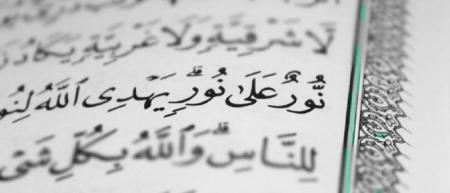 لَّا شَرْقِيَّةٍ وَلَا غَرْبِيَّةٍ يَكَادُ
نُّورٌ عَلَىٰ نُورٍۗ يَهْدِى ٱللَّهُ لِنُو
لِلنَّاسِۗ وَٱللَّهُ بِكُلِّ شَىْ